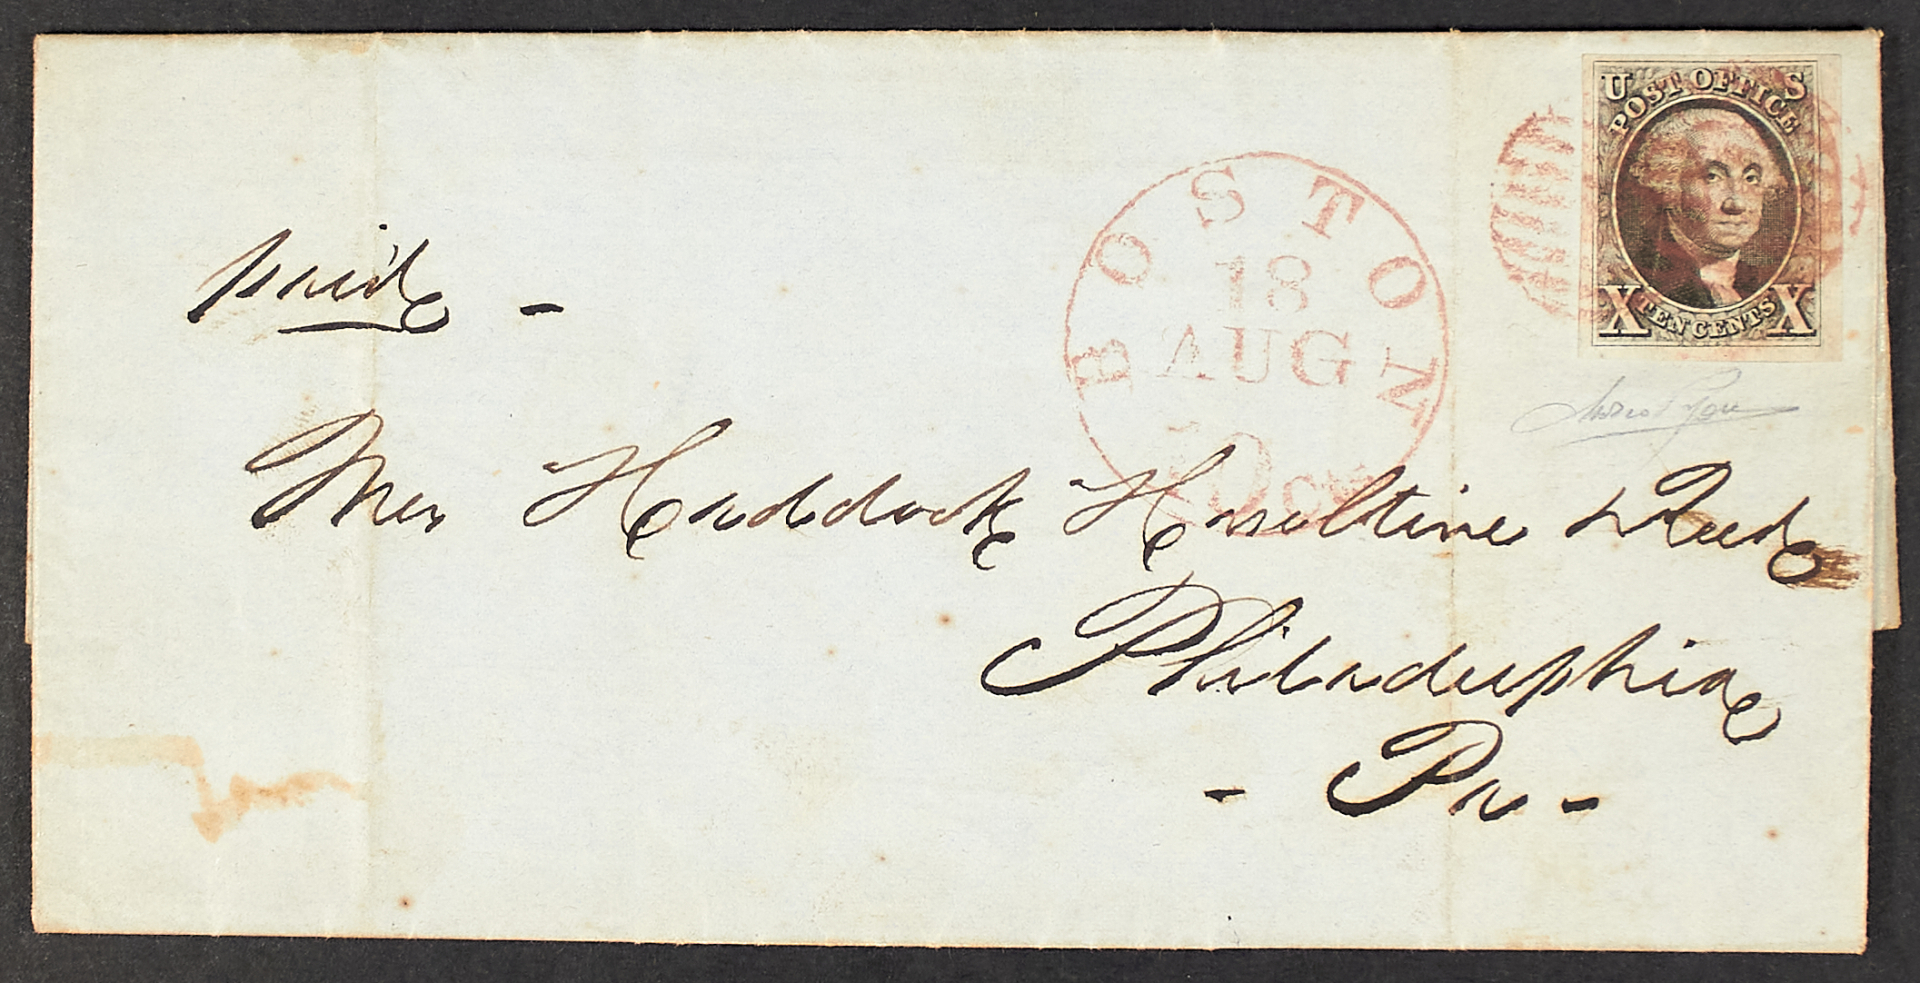 U S
POST OFFICE
X TEN CENTS X
BOSTON
18
AUG
10 cts
paid -
Mess Haddock Haseltine & Reed
Philadelphia
- Pa -